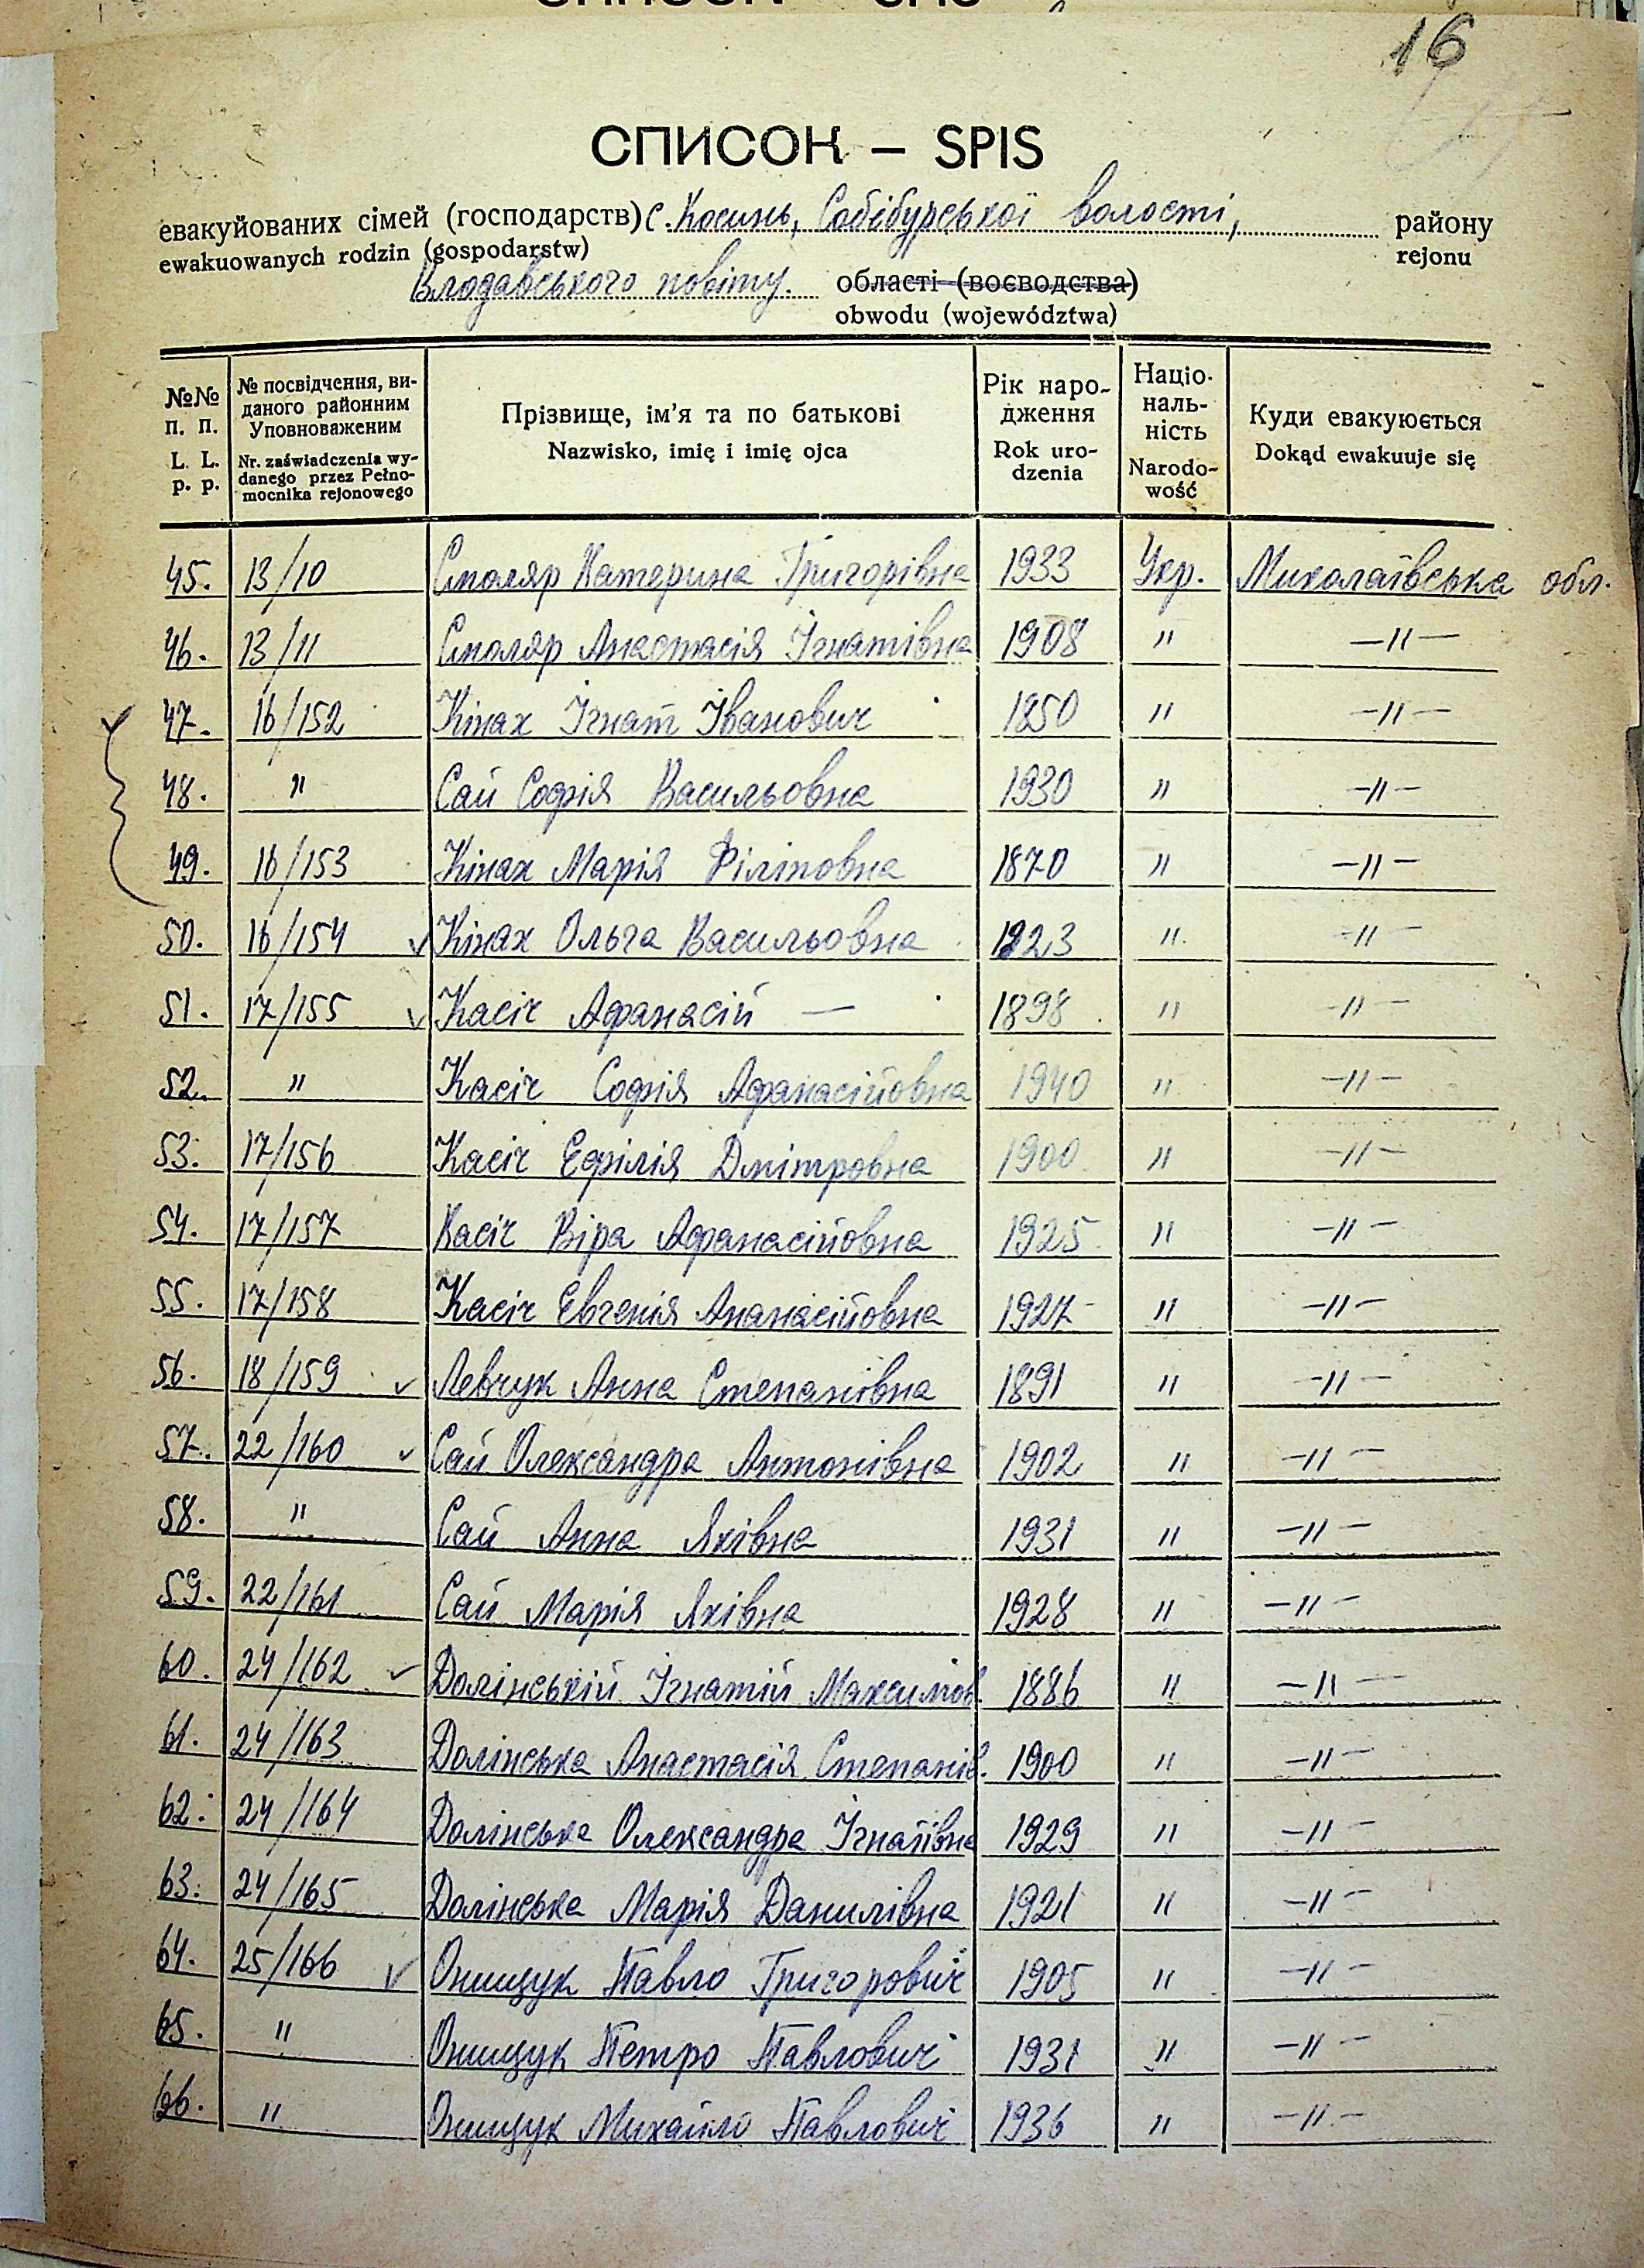 16
СПИСОК – SPIS
евакуйованих сімей (господарств) с. Косинь, Собібурської волості, району
ewakuowanych rodzin (gospodarstw) rejonu
Влодавського повіту. області (воєводства)
obwodu (województwa)
№№ п. п. L. L. p. p.
№ посвідчення, ви-
даного районним
Уповноваженим
Nr. zaświadczenia wy-
danego przez Pełno-
mocnika rejonowego
Прізвище, ім'я та по батькові
Nazwisko, imię i imię ojca
Рік наро-
дження
Rok uro-
dzenia
Націо-
наль-
ність
Narodo-
wość
Куди евакуюється
Dokąd ewakuuje się
45. 13/10 Смоляр Катерина Григорівна 1933 Укр. Миколаївська обл.
46. 13/11 Смоляр Анастасія Ігнатівна 1908 " —"—
47. 16/152 Кінах Ігнат Іванович 1850 " —"—
48. " Сай Софія Васильовна 1930 " —"—
49. 16/153 Кінах Марія Філіповна 1870 " —"—
50. 16/154 Кінах Ольга Васильовна 1923 " —"—
51. 17/155 Касіч Афанасій — 1898 " —"—
52. " Касіч Софія Афанасійовна 1940 " —"—
53. 17/156 Касіч Ефілія Дмітровна 1900 " —"—
54. 17/157 Касіч Віра Афанасійовна 1925 " —"—
55. 17/158 Касіч Євгенія Апанасійовна 1927 " —"—
56. 18/159 Левчук Анна Степанівна 1891 " —"—
57. 22/160 Сай Олександра Антонівна 1902 " —"—
58. " Сай Анна Яківна 1931 " —"—
59. 22/161 Сай Марія Яківна 1928 " —"—
60. 24/162 Долінській Ігнатій Максимов. 1886 " —"—
61. 24/163 Долінська Анастасія Степанів. 1900 " —"—
62. 24/164 Долінська Олександра Ігнатівна 1929 " —"—
63. 24/165 Долінська Марія Данилівна 1921 " —"—
64. 25/166 Онищук Павло Григорович 1905 " —"—
65. " Онищук Петро Павлович 1931 " —"—
66. " Онищук Михайло Павлович 1936 " —"—